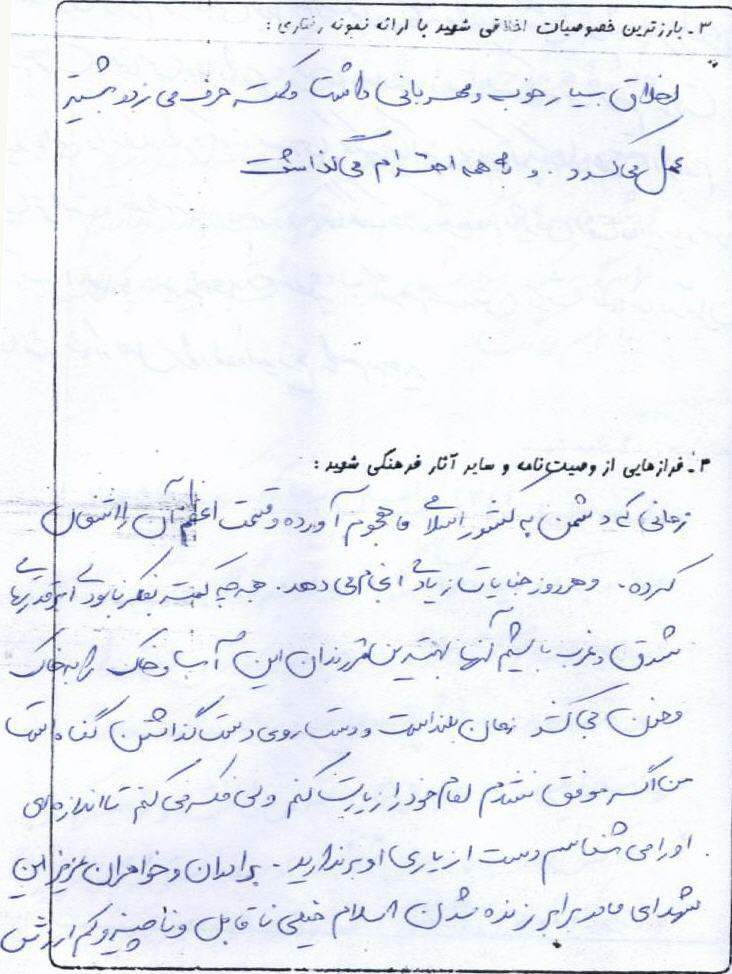 ۳- بارزترین خصوصیات اخلاقی شهید با ارائه نمونه رفتاری :
اخلاق بسیار خوب و مهربانی داشت و کمتر حرف می زد و بیشتر
عمل می کرد . و به همه احترام می گذاشت
۴- فرازهایی از وصیت نامه و سایر آثار فرهنگی شهید :
زمانی که دشمن به کشور اسلامی ما هجوم آورده و قسمت اعظم آن را اشغال
کرده . و هر روز جنایات زیادی انجام می دهد . هر چه بفکر نابودی ابرقدرتهای
شرق و غرب باشیم آنها بهترین فرزندان این آب و خاک را به خاک
و خون می کشد زمان و دست روی دست گذاشتن گناه است
من اگر موفق نشدم امام خود را زیارت کنم ولی فکر می کنم تا اندازه ای
او را می شناسم دست از یاری او برندارید . برادران و خواهران عزیز این
شهدای ما در برابر زنده شدن اسلام خیلی ناقابل و ناچیز و کم ارزش